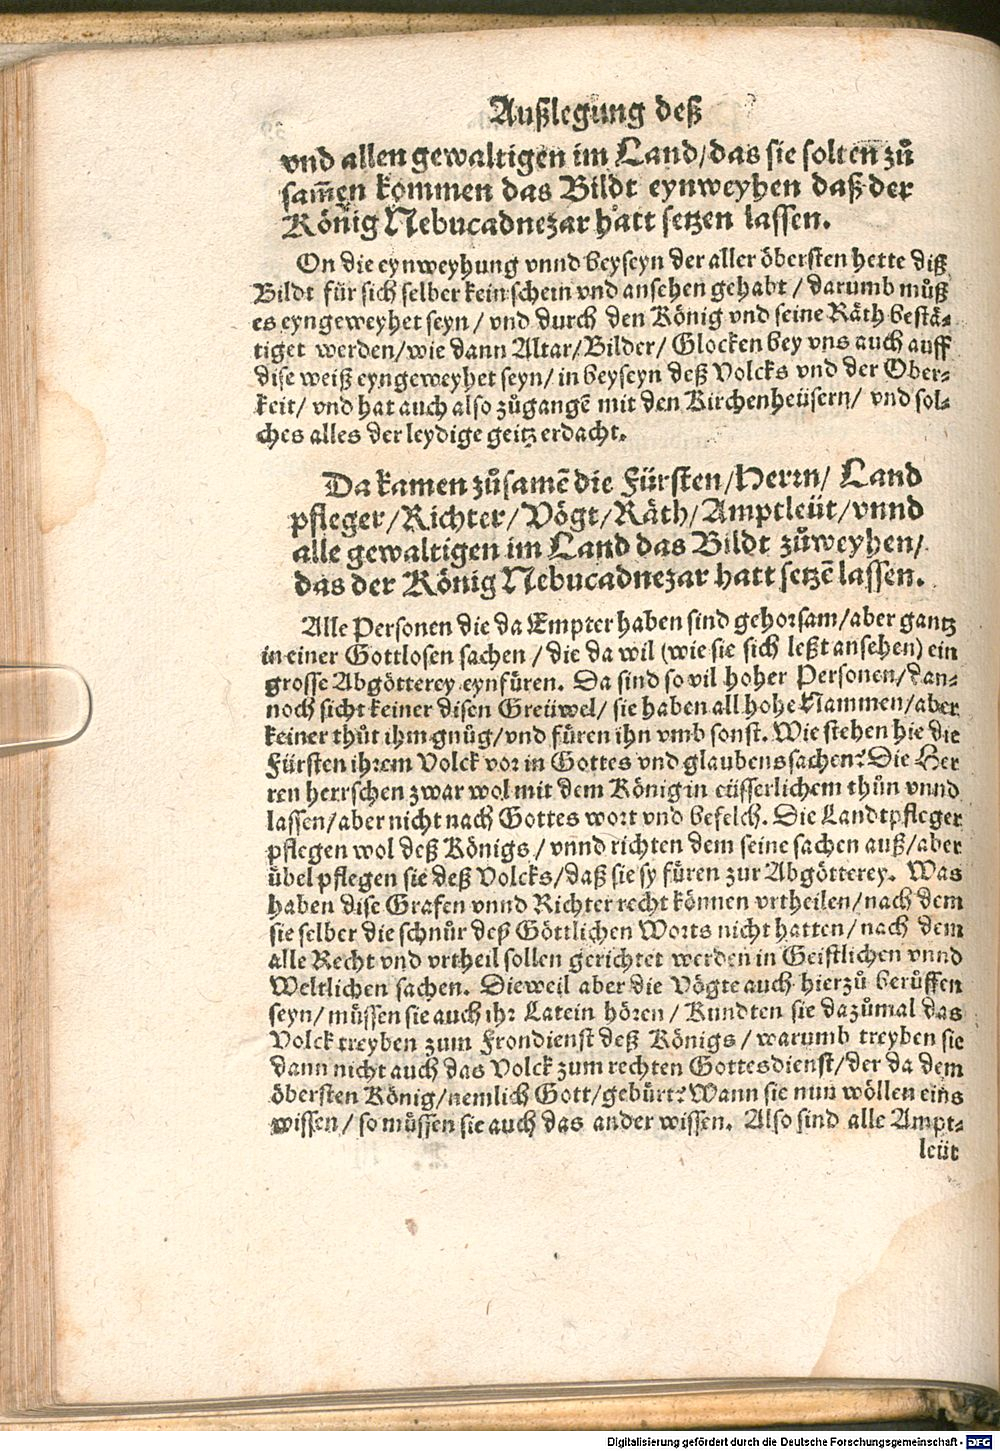 Außlegung deß
vnd allen gewaltigen im Land/das sie solten zů
sam̃en kommen das Bildt eynweyhen daß der
König Nebucadnezar hatt setzen lassen.
On die eynweyhung vnnd beyseyn der aller öbersten hette diß
Bildt für sich selber kein schein vnd ansehen gehabt / darumb můß
es eyngeweyhet seyn / vnd durch den König vnd seine Räth bestä-
tiget werden/wie dann Altar/Bilder/ Glocken bey vns auch auff
dise weiß eyngeweyhet seyn/ in beyseyn deß Volcks vnd der Ober-
keit/ vnd hat auch also zůgangē mit den Kirchenheüsern/ vnd sol-
ches alles der leydige geitz erdacht.
Da kamen zůsamē die Fürsten/Herrn/ Land
pfleger/Richter/Vögt/Räth/Amptleüt/vnnd
alle gewaltigen im Land das Bildt zůweyhen/
das der König Nebucadnezar hatt setzē lassen.
Alle Personen die da Empter haben sind gehorsam/aber gantz
in einer Gottlosen sachen / die da wil (wie sie sich leßt ansehen) ein
grosse Abgötterey eynfüren. Da sind so vil hoher Personen/dan-
noch sicht keiner disen Greüwel/ sie haben all hohe Nammen/aber
keiner thůt ihm gnůg/vnd füren ihn vmb sonst. Wie stehen hie die
Fürsten ihrem Volck vor in Gottes vnd glaubens sachen? Die Her
ren herrschen zwar wol mit dem König in eüsserlichem thůn vnnd
lassen/aber nicht nach Gottes wort vnd befelch. Die Landtpfleger
pflegen wol deß Königs / vnnd richten dem seine sachen auß/aber
übel pflegen sie deß Volcks/daß sie sy füren zur Abgötterey. Was
haben dise Grafen vnnd Richter recht können vrtheilen/nach dem
sie selber die schnůr deß Göttlichen Worts nicht hatten/nach dem
alle Recht vnd vrtheil sollen gerichtet werden in Geistlichen vnnd
Weltlichen sachen. Dieweil aber die Vögte auch hierzů berůffen
seyn/müssen sie auch ihr Latein hören / Kundten sie dazůmal das
Volck treyben zum Frondienst deß Königs / warumb treyben sie
dann nicht auch das Volck zum rechten Gottesdienst/der da dem
öbersten König/nemlich Gott/gebürt? Wann sie nun wöllen eins
wissen / so müssen sie auch das ander wissen. Also sind alle Ampt-
leüt
Digitalisierung gefördert durch die Deutsche Forschungsgemeinschaft - DFG